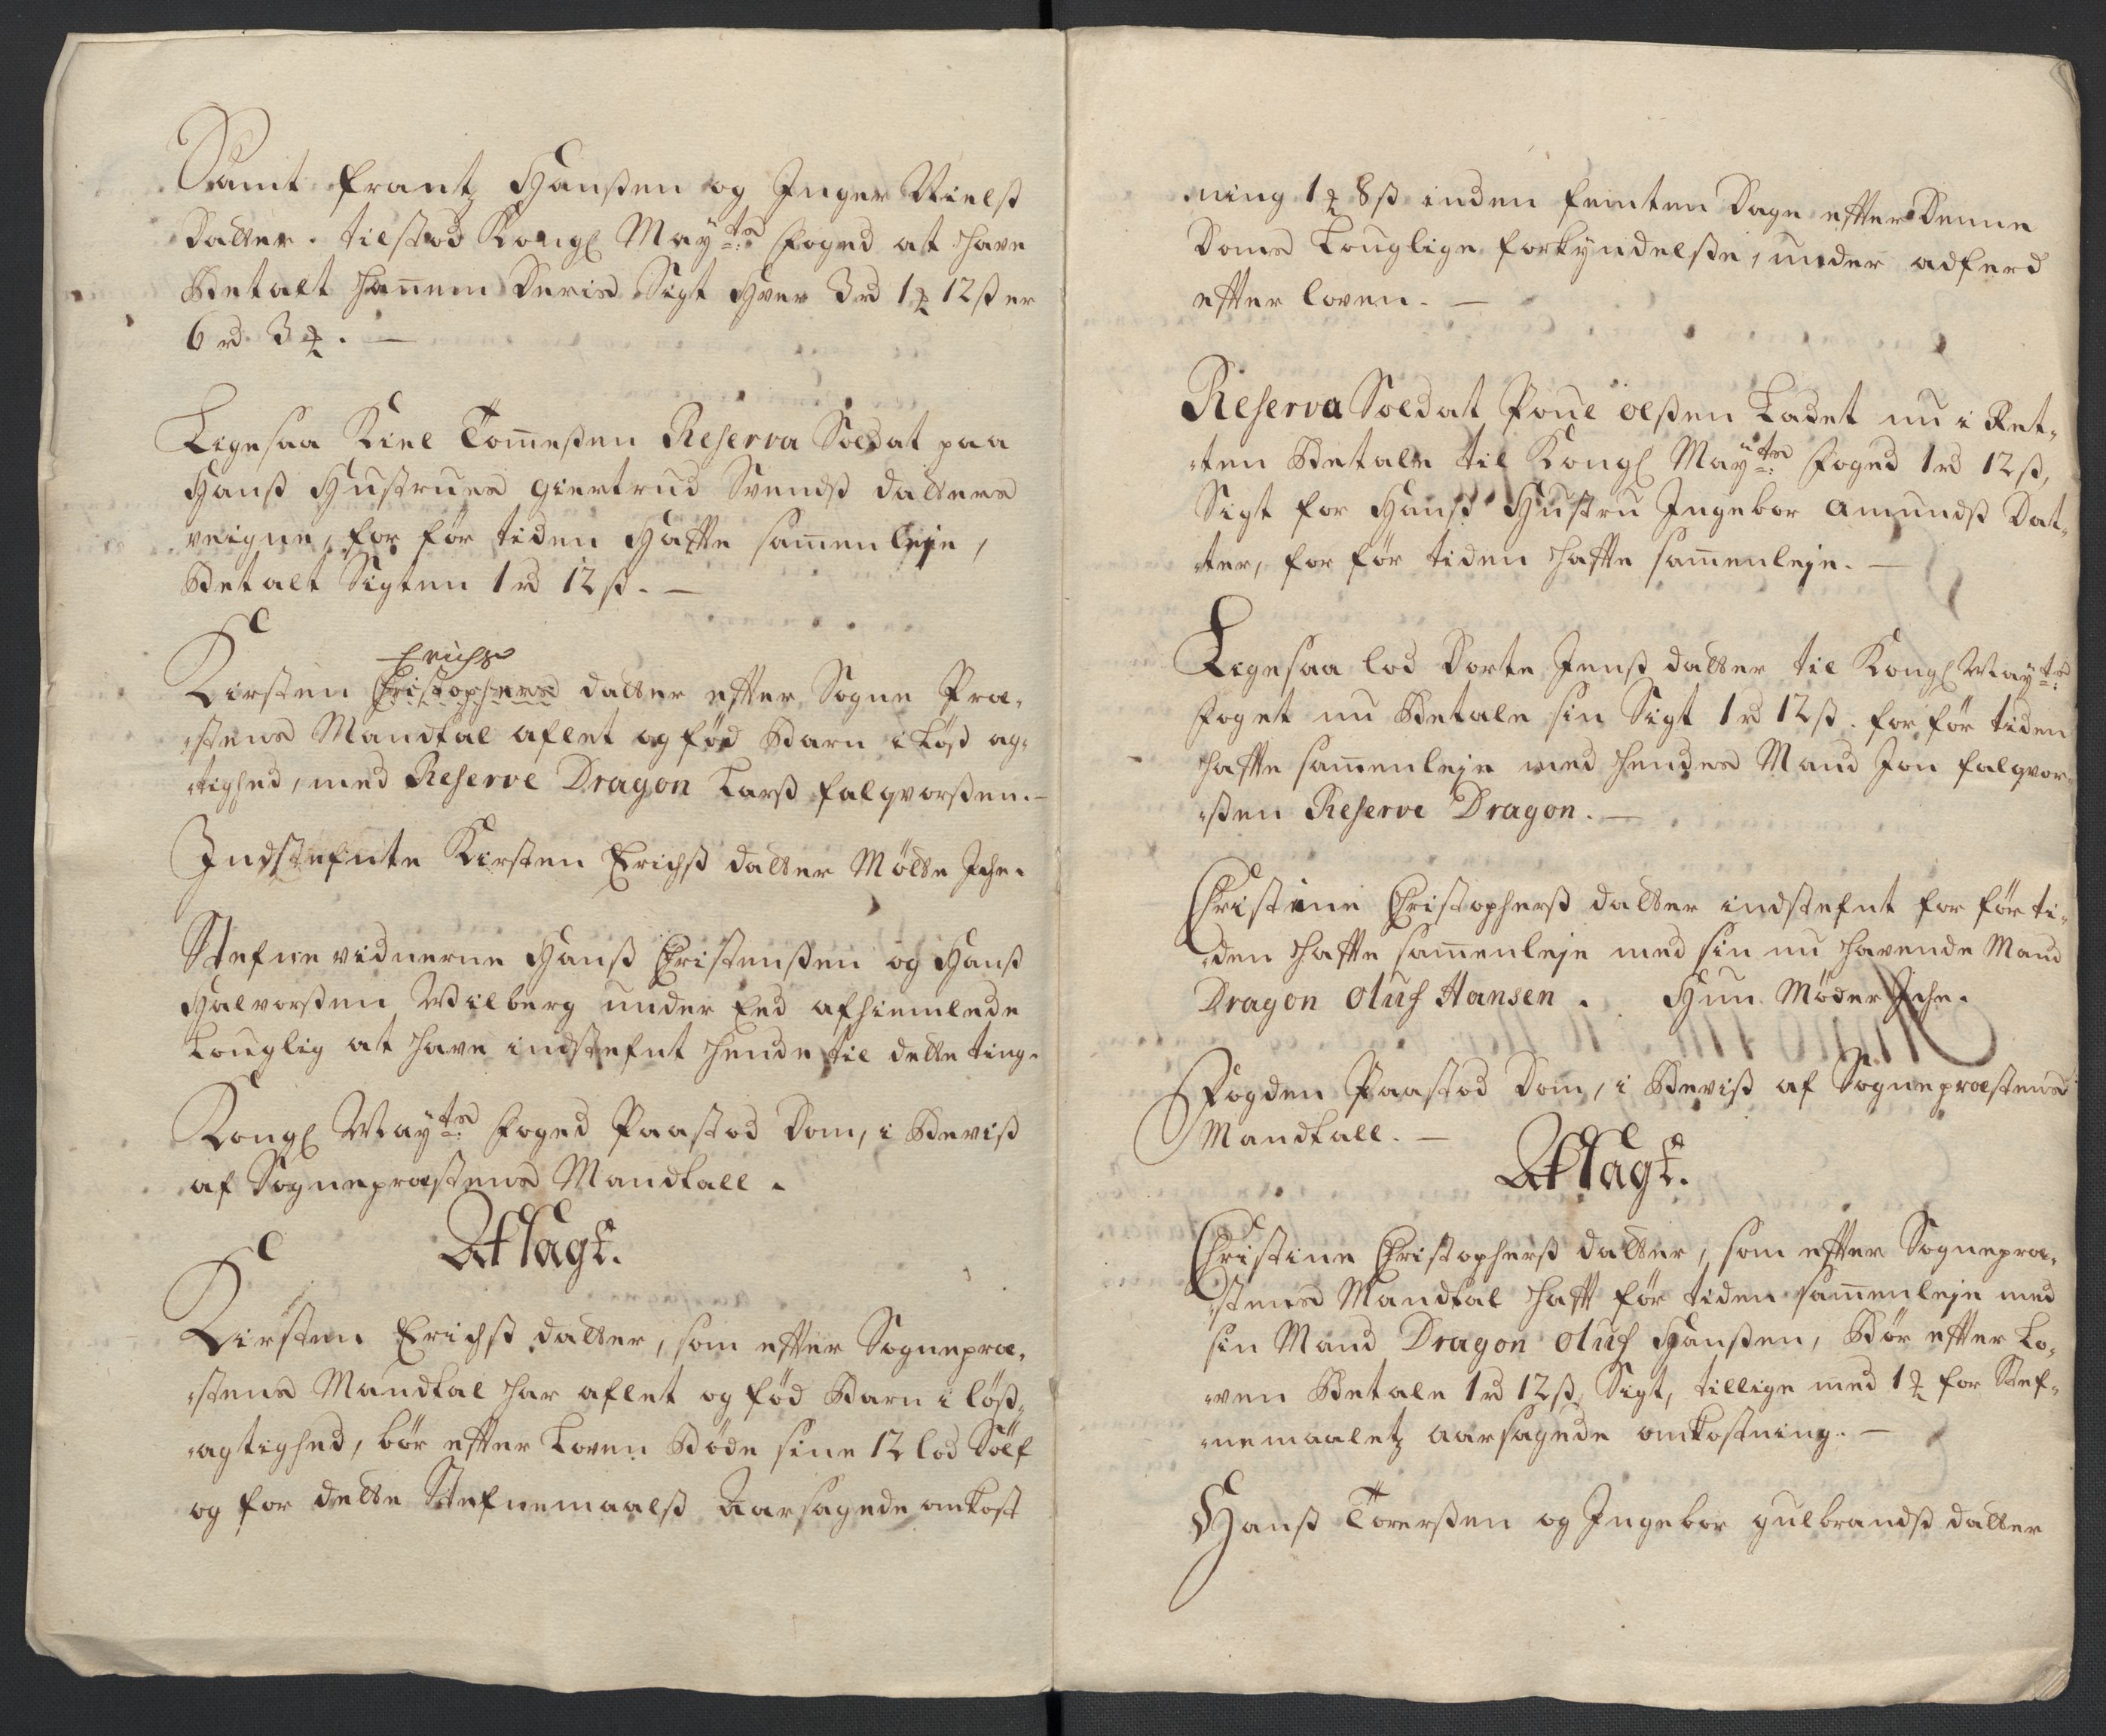 Samt Frantz Hanßen og Inger Nielß
Datter. tilstod Kongl May:ts Foged at have
Betalt hannem Deris Sigt Hver 3 rd 1 ꝗ 12 ß er
6 rd 3 ꝗ. —
Ligesaa Kiel Tommeßen Reserva Soldat paa
Hanß Hustrues Giertrud Svendß datters
veigne, for før tiden Haffte sammenleje,
Betalt Sigten 1 rd 12 ß. —
Erichs
Kirsten Christophers datter efter Sogne Præ-
stens Mandtal aflet og fød Barn i Løß ag-
tighed, med Reserve Dragon Larß Falqvorßen. —
Indstefnte Kirsten Erichß datter Mødte Iche.
Stefne vidnerne Hanß Christenßen og Hanß
Halvorßen Wilberg under Eed afhiemlede
Louglig at have indstefnt hende til dette ting.
Kongl May:ts Foged Paastod Dom, i Beviß
af Sognepræstens Mandtall.
Afsagt.
Kirsten Erichß datter, som efter Sognepræ-
stens Mandtal har aflet og fød Barn i løß-
agtighed, bør efter Loven Bøde sine 12 lod Sølf
og for dette Stefnemaalß Aarsagede omkost
ning 1 ꝗ 8 ß inden femten Dage efter Denne
Doms Louglige forkyndelße, under adferd
efter loven. —
Reserva Soldat Poul Olßen Ladet nu i Ret-
ten Betale til Kongl May:ts Foged 1 rd 12 ß,
Sigt for Hanß Hustru Ingebor Amundß Dat-
ter, for før tiden haffte sammenleje. —
Ligesaa lod Dorte Jenß datter til Kongl May:ts
Foget nu Betale sin Sigt 1 rd 12 ß. for før tiden
haffte sammenleje med hendes Mand Jon Falqvor-
ßen Reserve Dragon. —
Christine Christopherß datter indstefnt for før ti-
den haffte sammenleje med sin nu havende Mand
Dragon Oluf Hansen. Hun Møder Iche.
Fogden Paastod Dom, i Beviß af Sognepræstens
Mandtall. —
Afsagt.
Christine Christopherß datter, som efter Sognepræ-
stens Mandtal hafft før tiden sammenleje med
sin Mand Dragon Oluf Hanßen, Bør efter Lo-
ven Betale 1 rd 12 ß, Sigt, tillige med 1 ꝗ for Stef-
nemaaletz aarsagede omkostning. —
Hanß Torerßen og Ingebor Gulbrandß datter